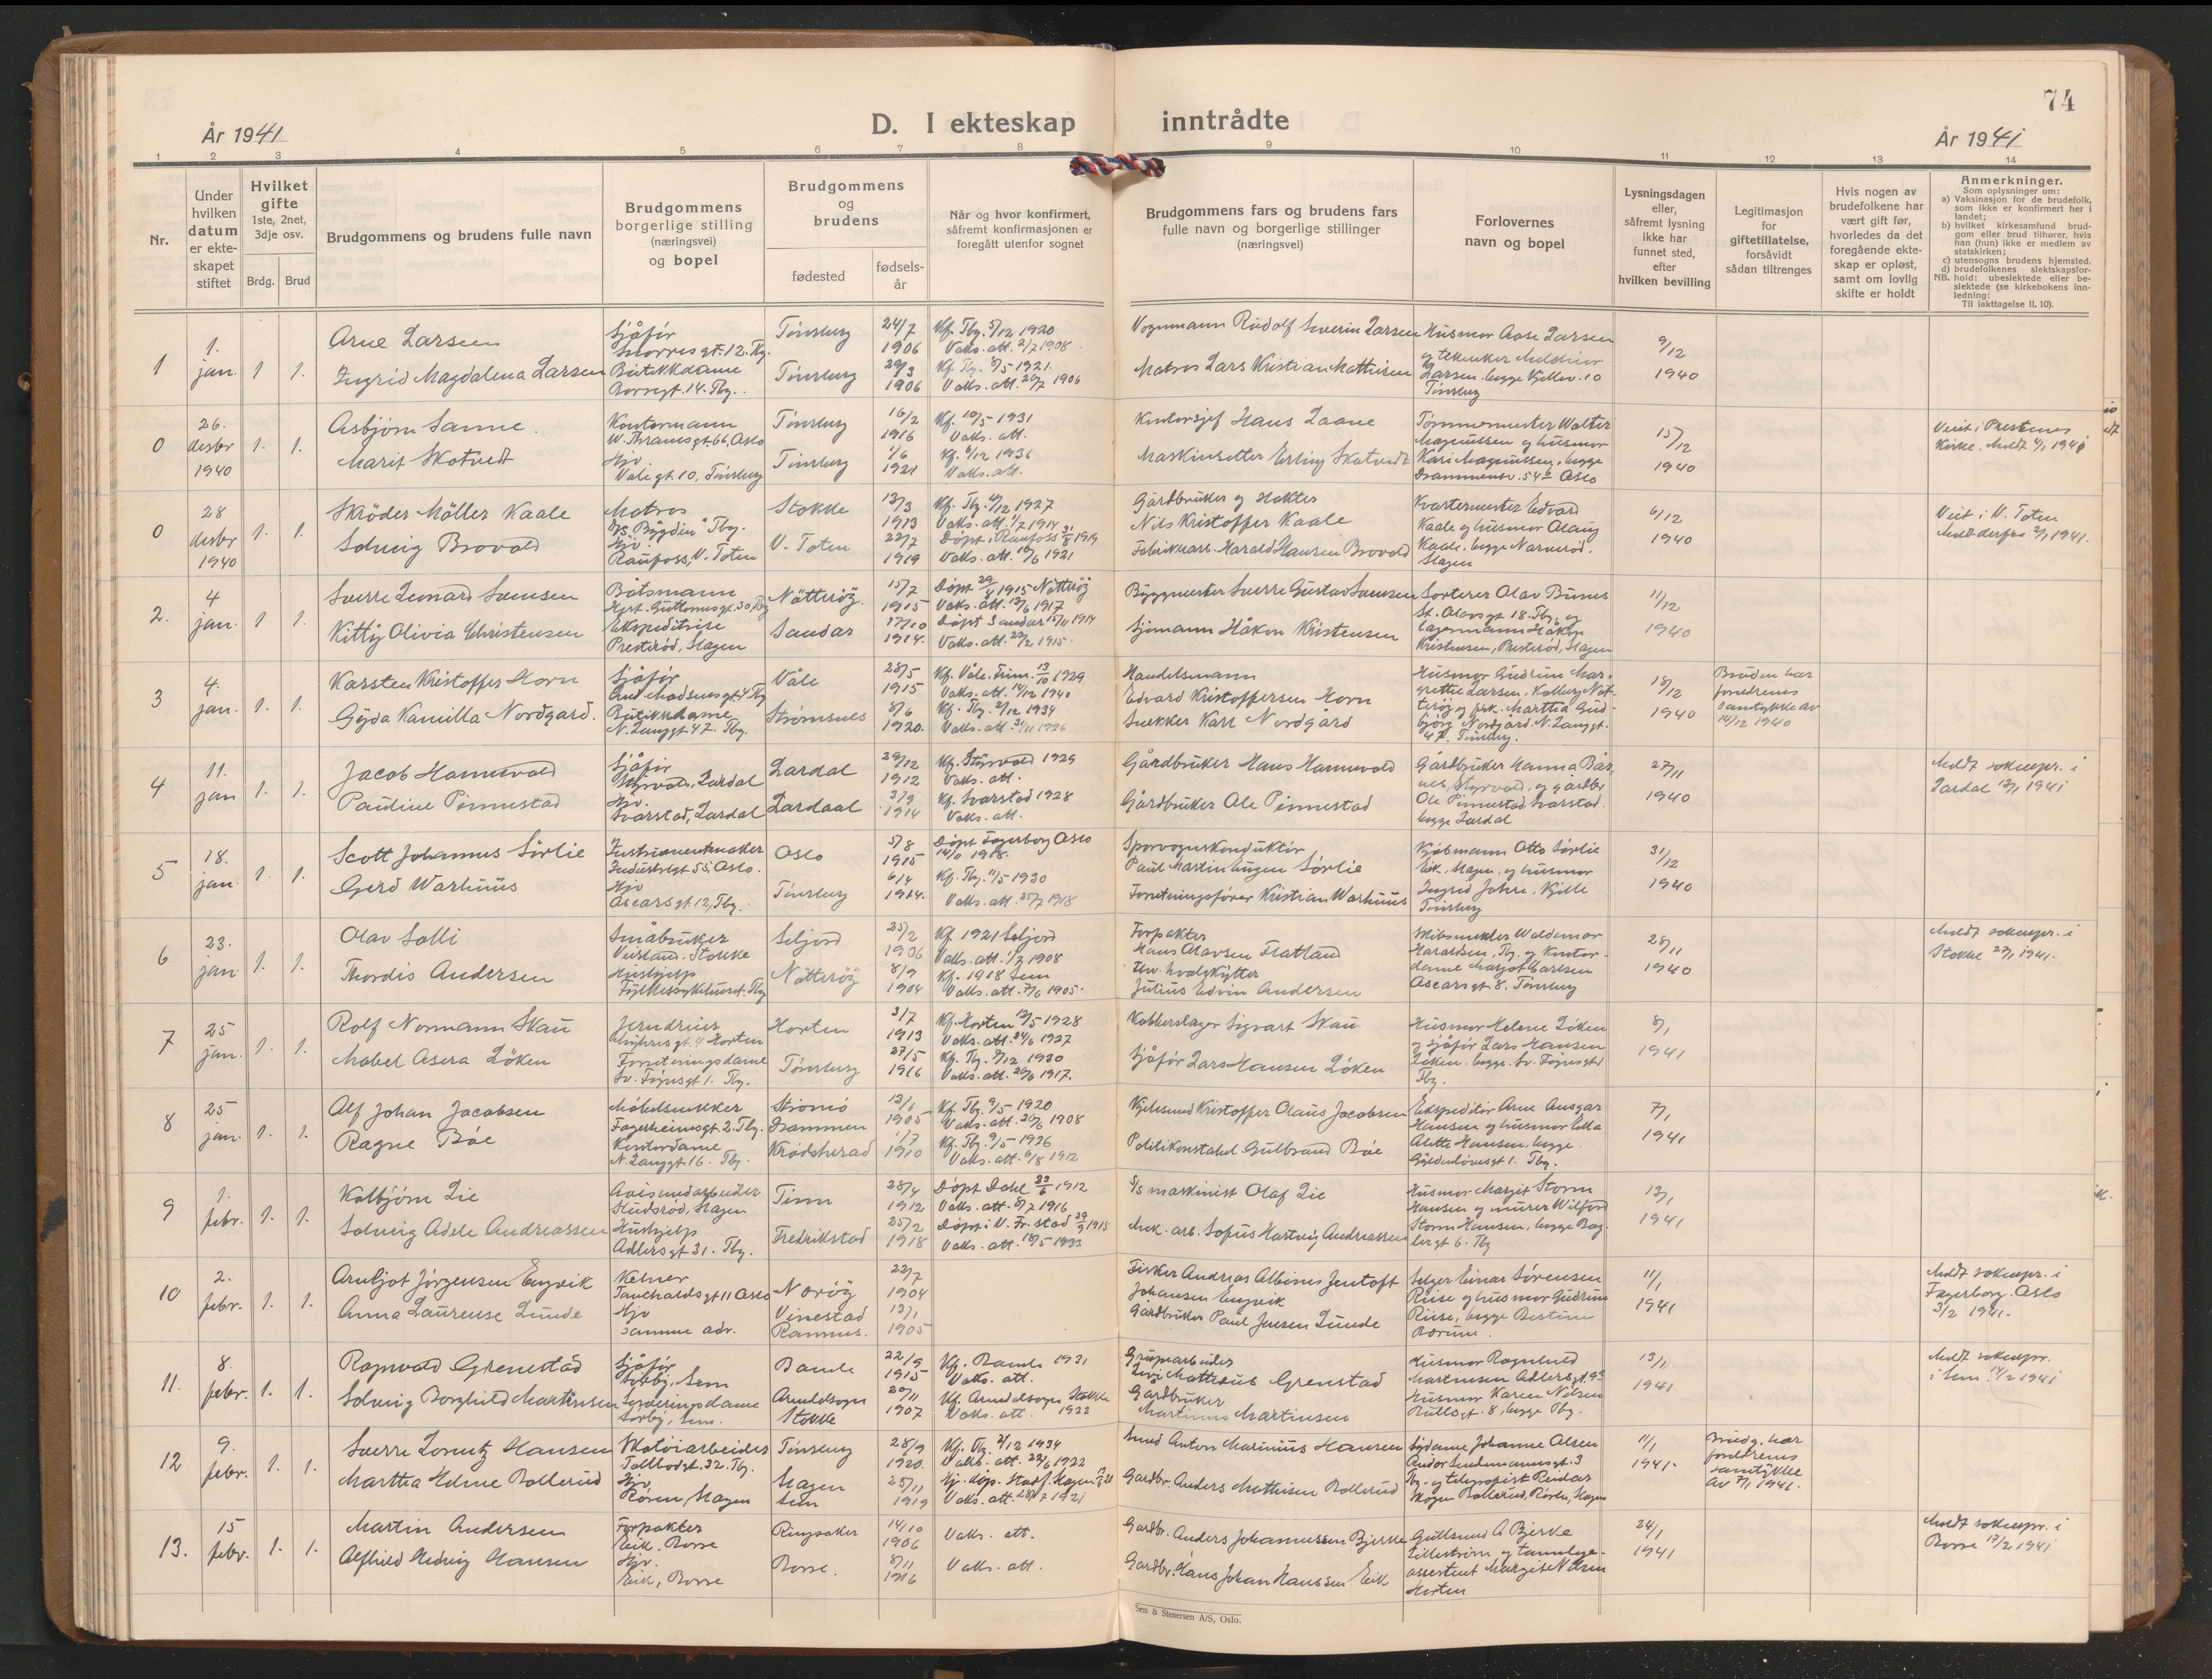 74
År 1941
D. I ekteskap inntrådte
År 1941
1 2 3 4 5 6 7 8 9 10 11 12 13 14
Nr.
Under hvilken datum er ekteskapet stiftet
Hvilket gifte 1ste, 2net, 3dje osv.
Brdg. Brud
Brudgommens og brudens fulle navn
Brudgommens borgerlige stilling (næringsvei) og bopel
Brudgommens og brudens
fødested
fødselsår
Når og hvor konfirmert, såfremt konfirmasjonen er foregått utenfor sognet
Brudgommens fars og brudens fars fulle navn og borgerlige stillinger (næringsvei)
Forlovernes navn og bopel
Lysningsdagen eller, såfremt lysning ikke har funnet sted, efter hvilken bevilling
Legitimasjon for giftetillatelse, forsåvidt sådan tiltrenges
Hvis nogen av brudefolkene har vært gift før, hvorledes da det foregående ekteskap er opløst, samt om lovlig skifte er holdt
Anmerkninger.
Som oplysninger om:
a) Vaksinasjon for de brudefolk, som ikke er konfirmert her i landet;
b) hvilket kirkesamfund brudgom eller brud tilhører, hvis han (hun) ikke er medlem av statskirken;
c) utensogns brudens hjemsted.
d) brudefolkenes slektskapsforhold: ubeslektede eller beslektede (se kirkebokens innledning:
NB. Til iakttagelse II, 10).
1 1. jan. 1 1.
Arne Larsen
Ingrid Magdalena Larsen
Sjåfør
Snorres gt. 12. Tbg.
Butikkdame
Tønsberg
Tønsberg
24/7 1906
29/3 1906
Kf. Tbg. 5/12 1920
Vaks. att. 2/7 1908
Kf. Tbg. 8/5 1921.
Vaks. att. 20/7 1906
Vognmann Rudolf Severin Larsen
Matros Lars Kristian Mathisen
Husmor Aase Larsen
Tønsberg
9/12 1940
0 26. desbr 1940 1. 1.
Asbjørn Sanne.
Marit Skotvedt
Kontormann
W. Thranesgt. 66, Oslo
Hjv
Tønsberg
Tønsberg
16/2 1916
1/6 1921
Kf. 10/5 1931
Vaks. att.
Kf. 6/12 1936
Vaks. att.
Maskinsetter Erling Skotvedt
Magnussen og husmor
Kari Magnussen, begge
15/12 1940
Viet i Prestenes
Kirke. Meldt 4/1 1941
0 28 desbr 1940 1. 1.
Skröder Möller Kaale
Solveig Brovold
Matros
D/S "Bygdin" Tbg.
Hjv.
Raufoss, V. Toten
Stokke
V. Toten
13/3 1913
22/7 1919
Kf. Tbg. 4/12 1927
Vaks. att. 1/7 1914
Døpt i Raufoss 31/8 1919
Vaks. att. 10/6 1921
Gårdbruker og Hekter
Nils Kristoffer Kaale
Fabrikkarb. Harald Hansen Brovold
Kvartermester Edvard
Kaale og husmor Olaug
Kaale. begge Narverød.
Slagen
6/12 1940
Viet i V. Toten
Meldt derfra 2/1 1941.
2. 4 jan. 1 1.
Sverre Leonard Svensen
Kitty Olivia Christensen
Båtsmann
Ekspeditrise
Presterød, Slagen
Nötteröy.
Sandar
15/7 1915
17/10 1914.
Døpt 29/8 1915 Nötteröy
Vaks. att. 13/6 1917
Døpt Sandar 15/11 1914
Vaks. att. 29/2 1915.
Byggmester Sverre Gustav Svensen
Sjømann Håkon Kristensen
St. Olavsgt 18. Tbg, og
lagermann Håkon
Kristensen, Presterød, Slagen
11/12 1940
3 4. jan. 1. 1.
Karsten Kristoffer Horn
Gyda Kamilla Nordgard.
Sjåfør
Butikkdame
N. Langgt. 47. Tbg.
Våle
Strømsnes
28/5 1915
8/6 1920.
Vaks. att. 14/12 1940
Kf. Tbg. 2/12 1934
Vaks. att 31/11 1926
Handelsmann
Edvard Kristoffersen Horn
Snekker Karl Nordgard
Husmor Gudrun Margrethe Larsen,
terøy og frk. Marthia Gudbjørg Nordgård. N. Langgt.
47. Tønsberg.
18/12 1940
Bruden har
foreldrenes
samtykke av
14/12 1940
4 11. jan 1. 1.
Jacob Hannevold
Pauline Pinnestad
Sjåfør
Styrvold, Lardal
Hjv.
Svarstad, Lardal
Lardal
Lardaal
29/12 1912
3/9 1914
Kf. Styrvold 1929
Vaks. att.
Kf. Svarstad 1928
Vaks. att.
Gårdbruker Hans Hannevold
Gårdbruker Ole Pinnestad
Ole Pinnestad Svarstad.
begge Lardal
27/11 1940
Meldt soknepr. i
Lardal 13/1 1941
5 18. jan. 1. 1.
Scott Johannes Sørlie
Gerd Warhuus
Instrumentmaker
Industrigt 55, Oslo.
Hjv
Ascarsgt. 12, Tbg.
Oslo
Tønsberg
5/8 1915
6/4 1914.
Døpt Fagerborg Oslo
Kf. Tbg. 11/5 1930
Vaks. att. 25/7 1918
Sporvognskonduktør
Paul Martin Eugen Sørlie
Forretningsfører Kristian Warhuus
Kjøbmann Otto Sørlie
Eik, Slagen, og husmor
Tønsberg
31/12 1940
6 23. jan 1. 1.
Olav Solli
Thordis Andersen
Småbruker
Veirland, Stokke
Hushjelp
Fylkessykehuset, Tbg
Seljord
Nötteröy
25/2 1906
8/9 1904
Kf. 1921 Seljord
Vaks. att. 1/7 1908
Kf. 1918 Sem
Vaks. att. 7/6 1905.
Forpakter
Hans Olavsen Flatland
Hvalskytter
Julius Edvin Andersen
Skibsmekler Waldemar
Haraldsen, Tbg. og Kontordame Margot Carlsen
Ascarsgt. 8. Tønsberg
28/11 1940
Meldt sokнepr. i
Stokke 27/1 1941.
7 25 jan. 1. 1.
Rolf Normann Skau
Mabel Asera Löken
Jerndreier
Forretningsdame
Sv. Føynsgt 1. Tbg.
Horten
Tønsberg
3/7 1913
27/5 1916
Kf. Horten 13/5 1928
Vaks. att. 24/6 1927
Kf. Tbg. 7/12 1930
Vaks. att. 26/6 1917.
Kobberslager Sigvart Skau
Sjåfør Lars Hansen Löken
Husmor Helene Löken
og sjåfør Lars Hansen
Löken. begge Sv. Føynsgt 1
Tbg.
8/1 1941
8 25 jan. 1. 1.
Alf Johan Jacobsen
Ragne Bøe
Møbelsnekker
Fagerheimsgt 2. Tbg.
Kontordame
N. Langgt 16. Tbg.
Strømsø
Drammen
Krødsherad
13/6 1905
1/7 1910
Kf. Tbg. 9/5 1920
Vaks. att. 26/6 1908
Kf. Tbg. 9/5 1926
Vaks. att. 6/8 1912
Kjelesmed Kristoffer Olaus Jacobsen
Politikonstabel Gulbrand Bøe
Ekspeditør Arne Ansgar
Hansen og husmor Ella
Alette Hansen, begge
Gyldenløvesgt 1. Tbg.
7/1 1941
9 1. febr. 1. 1.
Kolbjørn Lie
Solveig Adele Andreassen
Husvød, Slagen
Hushjelp
Adlersgt 31. Tbg.
Tinn
Fredrikstad
28/4 1912
25/2 1918
Døpt Dahl 23/6 1912
Vaks. att. 8/7 1916
Døpt i V. Fr.stad 29/9 1918
Vaks. att. 18/5 1922
S/S maskinist Olaf Lie
Mek. arb. Sofus Hartvig Andreassen
Husmor Margit Storm
Hansen og murer Wilford
Storm Hansen, begge Bagbergt 6. Tbg
13/1 1941
10 2. febr. 1. 1.
Arnljot Jørgensen Engvik
Anna Laurense Lunde
Kelner
Hjv
samme adr.
Norøy
Vinestad
22/7 1904
13/1 1905
Fisker Andreas Albinus Jentoft
Johansen Engvik
Gårdbruker Paul Jensen Lunde
Selger Einar Sørensen
Riise og husmor Gudrun
Riise, begge Bestum
Bærum.
11/1 1941
Meldt sokнepr. i
Fagerborg. Oslo
3/2 1941.
11. 8. febr. 1. 1.
Ragnvald Grenstad
Solveig Borghild Martinsen
Sjåfør
Sørby, Sem
Sørby, Sem.
Ramnes
Arnadalsogn
Stokke
22/9 1915
20/11 1907
1931
Vaks. att.
Kf. Arnadalsogn Stokke
Vaks. att. 1922
Grubearbeider
Gardbruker
Martinus Martinsen
Husmor Ragnhild
Martinsen Adlersgt. 9
Husmor Karen Nilsen
Bullsgt. 8, begge Tbg.
13/1 1941
Meldt sokнepr.
i Sem 14/2 1941
12 9. febr. 1. 1.
Sverre Lorentz Hansen
Marthia Helene Bollerud
Skotøiarbeider
Tollbodgt. 32. Tbg.
Hjv.
Røren, Slagen
Tønsberg
Slagen
Sem
28/9 1920.
25/11 1919
Kf. Tbg. 2/12 1934
Vaks. att. 22/6 1922
Vaks. att. 28/7 1921
Smed Anton Marinius Hansen
Gardbr. Anders Mathisen Bollerud
Sydame Johanne Olsen
Tbg. og telegrafist Reidar
Bollerud, Røren, Slagen
11/1 1941.
Brudg. har
foreldrenes
samtykke
av 7/1 1941.
13. 15 febr. 1. 1.
Martin Andersen
Alfhild Hedvig Hansen
Forpakter
Eik, Borre
Hjv.
Eik, Borre
Ringsaker
Borre.
14/10 1906
8/11 1916
Vaks. att.
Vaks. att.
Gardbr. Anders Johannessen Bjerke
Gardbr. Hans Johan Hanssen Eik
Gullsmed A Bjerke
Lillestrøm og tannlegeassistent Margit Nilsen
Horten
24/1 1941
Meldt sokнepr. i
Borre 17/2 1941
Sem & Stenersen A/S, Oslo.